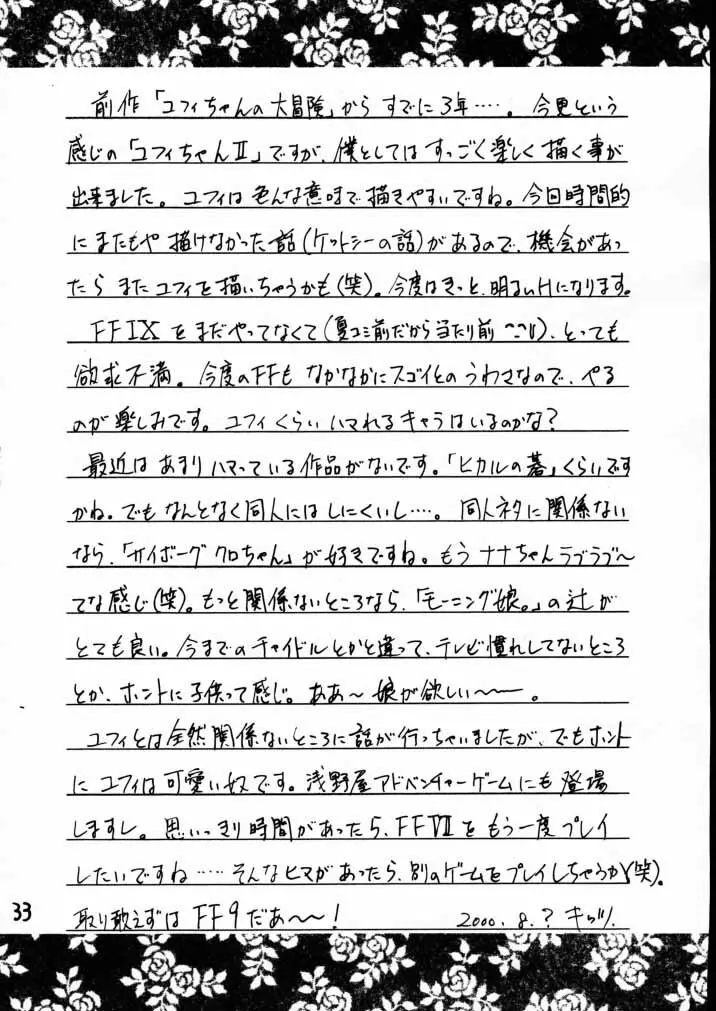 前作「ユフィちゃんの大冒険」からすでに3年‥‥。今更という
感じの「ユフィちゃんⅡ」ですが、僕としてはすっごく楽しく描く事が
出来ました。ユフィは色んな意味で描きやすいですね。今回時間的
にまたもや描けなかった話(ケットシーの話)があるので、機会があっ
たらまたユフィを描いちゃうかも(笑)。今度はきっと、明るいHになります。
FFⅨをまだやってなくて(夏コミ前だから当たり前)、とっても
欲求不満。今度のFFもなかなかにスゴイとのうわさなので、やる
のが楽しみです。ユフィくらいハマれるキャラはいるのかな?
最近はあまりハマっている作品がないです。「ヒカルの碁」くらいです
かね。でもなんとなく同人にはしにくいし‥‥。同人ネタに関係ない
なら、「サイボーグクロちゃん」が好きですね。もうナナちゃんラブラブ〜
てな感じ(笑)。もっと関係ないところなら、「モーニング娘。」の辻が
とても良い。今までのチャイドルとかと違って、テレビ慣れしてないところ
とか、ホントに子供って感じ。ああ〜娘が欲しい〜〜。
ユフィとは全然関係ないところに話が行っちゃいましたが、でもホント
にユフィは可愛い奴です。浅野屋アドベンチャーゲームにも登場
しますし。思いっきり時間があったら、FFⅦをもう一度プレイ
したいですね‥‥そんなヒマがあったら、別のゲームをプレイしちゃうか(笑)。
取り敢えずはFF9だあ〜〜!
2000.8.? キッツ
33